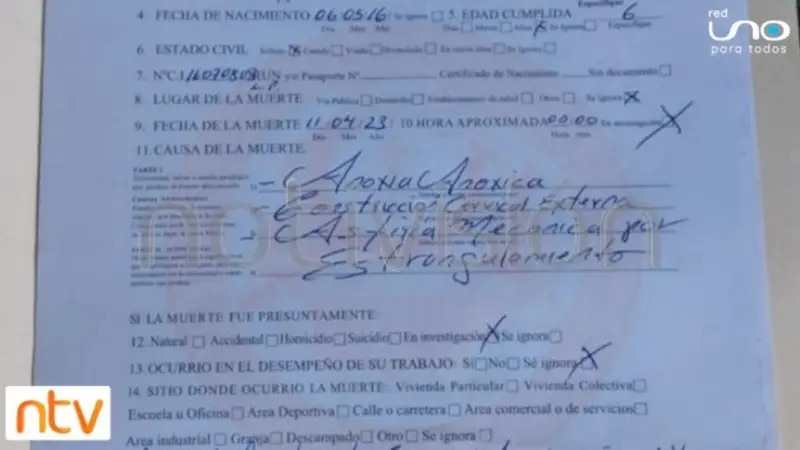 Especifique
4. FECHA DE NACIMIENTO 06/05/16 Se ignora 5. EDAD CUMPLIDA 6
Día Mes Año Días Meses Años X Se Ignora Especifique
6. ESTADO CIVIL Soltero X Casado Viudo Divorciado En unión libre Se Ignora
7. NºC.I. RUN y/o Pasaporte Nº Certificado de Nacimiento Sin documento
8. LUGAR DE LA MUERTE Vía Pública Domicilio Establecimiento de salud Otros Se ignora X
9. FECHA DE LA MUERTE 11/04/23 10 HORA APROXIMADA 00:00 En investigación X
Día Mes Año Hora min
11. CAUSA DE LA MUERTE.
PARTE I
- Anoxia Anoxica
- Constricción Cervical Externa
- Asfixia Mecanica por
Estrangulamiento
notivisión
SI LA MUERTE FUE PRESUNTAMENTE:
12. Natural Accidental Homicidio Suicidio En investigación X Se ignora
13 OCURRIO EN EL DESEMPEÑO DE SU TRABAJO: Si No Sé ignora X
14. SITIO DONDE OCURRIO LA MUERTE: Vivienda Particular Vivienda Colectiva
Escuela u Oficina Area Deportiva Calle o carretera Area comercial o de servicios
Area industrial Granja Descampado Otro Se ignora
red
uno
para todos
ntv